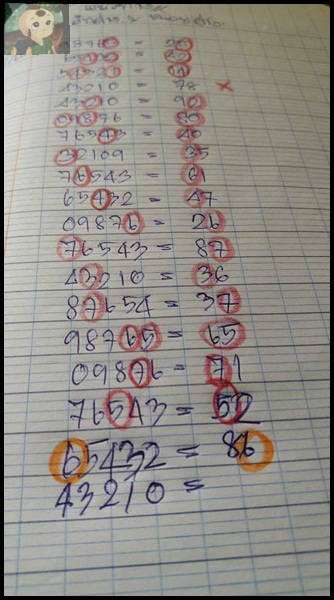 43210 = 78 ×
43210 = 90
09876 = 80
76543 = 40
32109 = 35
76543 = 61
65432 = 47
09876 = 26
76543 = 87
43210 = 36
87654 = 37
98765 = 65
09876 = 71
76543 = 52
65432 = 86
43210 =